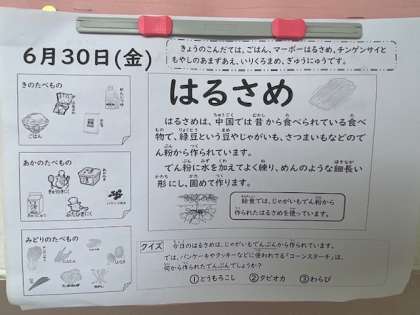 6月30日(金)
きょうのこんだては、ごはん、マーボーはるさめ、チンゲンサイと
もやしのあまずあえ、いりくろまめ、ぎゅうにゅうです。
きのたべもの
ごはん
あかのたべもの
ぎゅうにゅう
ぶたひきにく
みどりのたべもの
はるさめ
はるさめは、中国では昔から食べられている食べ
物で、緑豆という豆やじゃがいも、さつまいもなどので
ん粉から作られています。
でん粉に水を加えてよく練り、めんのような細長い
形にし、固めて作ります。
給食では、じゃがいもでん粉から
作られたはるさめを使っています。
クイズ
今日のはるさめは、じゃがいもでんぷんから作られています。
では、パンケーキやクッキーなどに使われてる「コーンスターチ」は、
何から作られたでんぷんでしょうか?
①とうもろこし ②タピオカ ③わらび